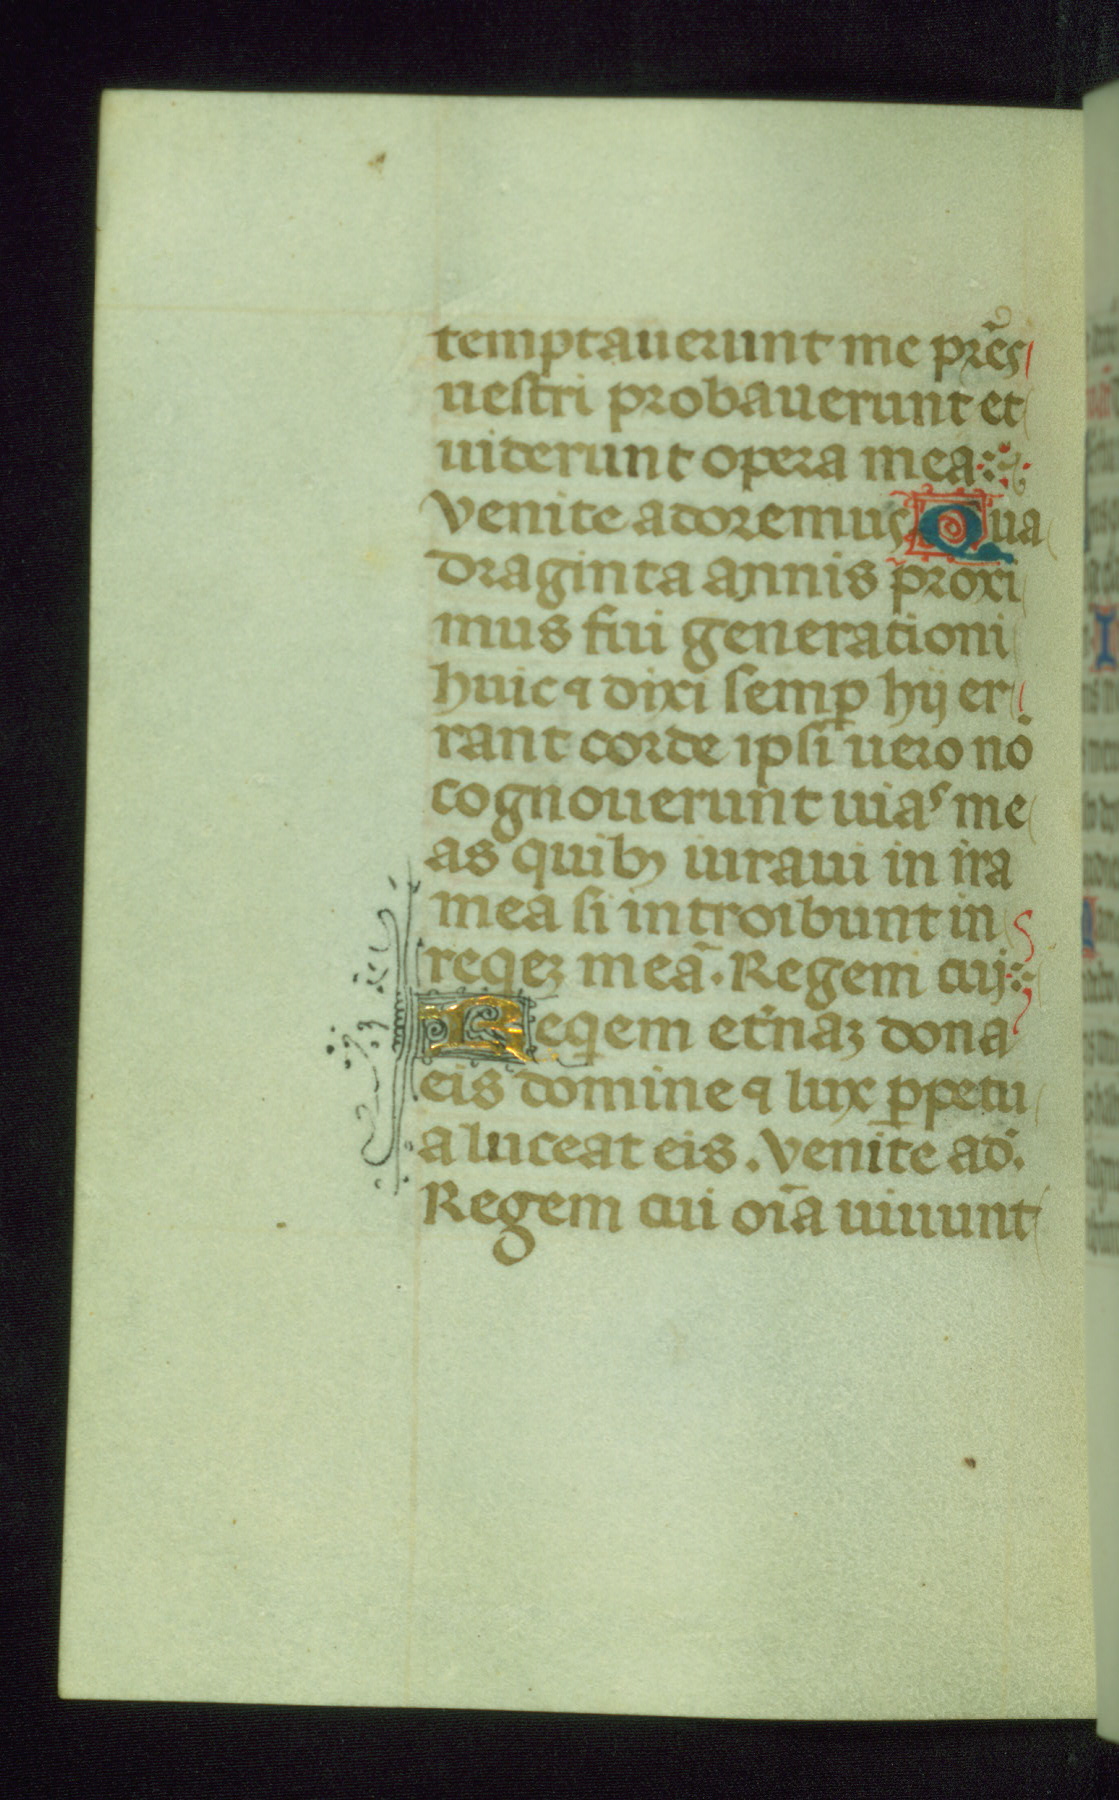 temptauerunt me pr̃es
uestri probauerunt et
uiderunt opera mea
venite adoremus Qua
draginta annis proxi
mus fui generationi
huic ⁊ dixi semꝑ hij er
rant corde ipsi uero nō
cognouerunt uias me
as quibꝫ iuraui in ira
mea si introibunt in
reqeꝫ meā. Regem cuj
Reqem et̄naꝫ dona
eis domine ⁊ lux ꝑpetu
a luceat eis. venite ad.
Regem cui oīa uiuunt